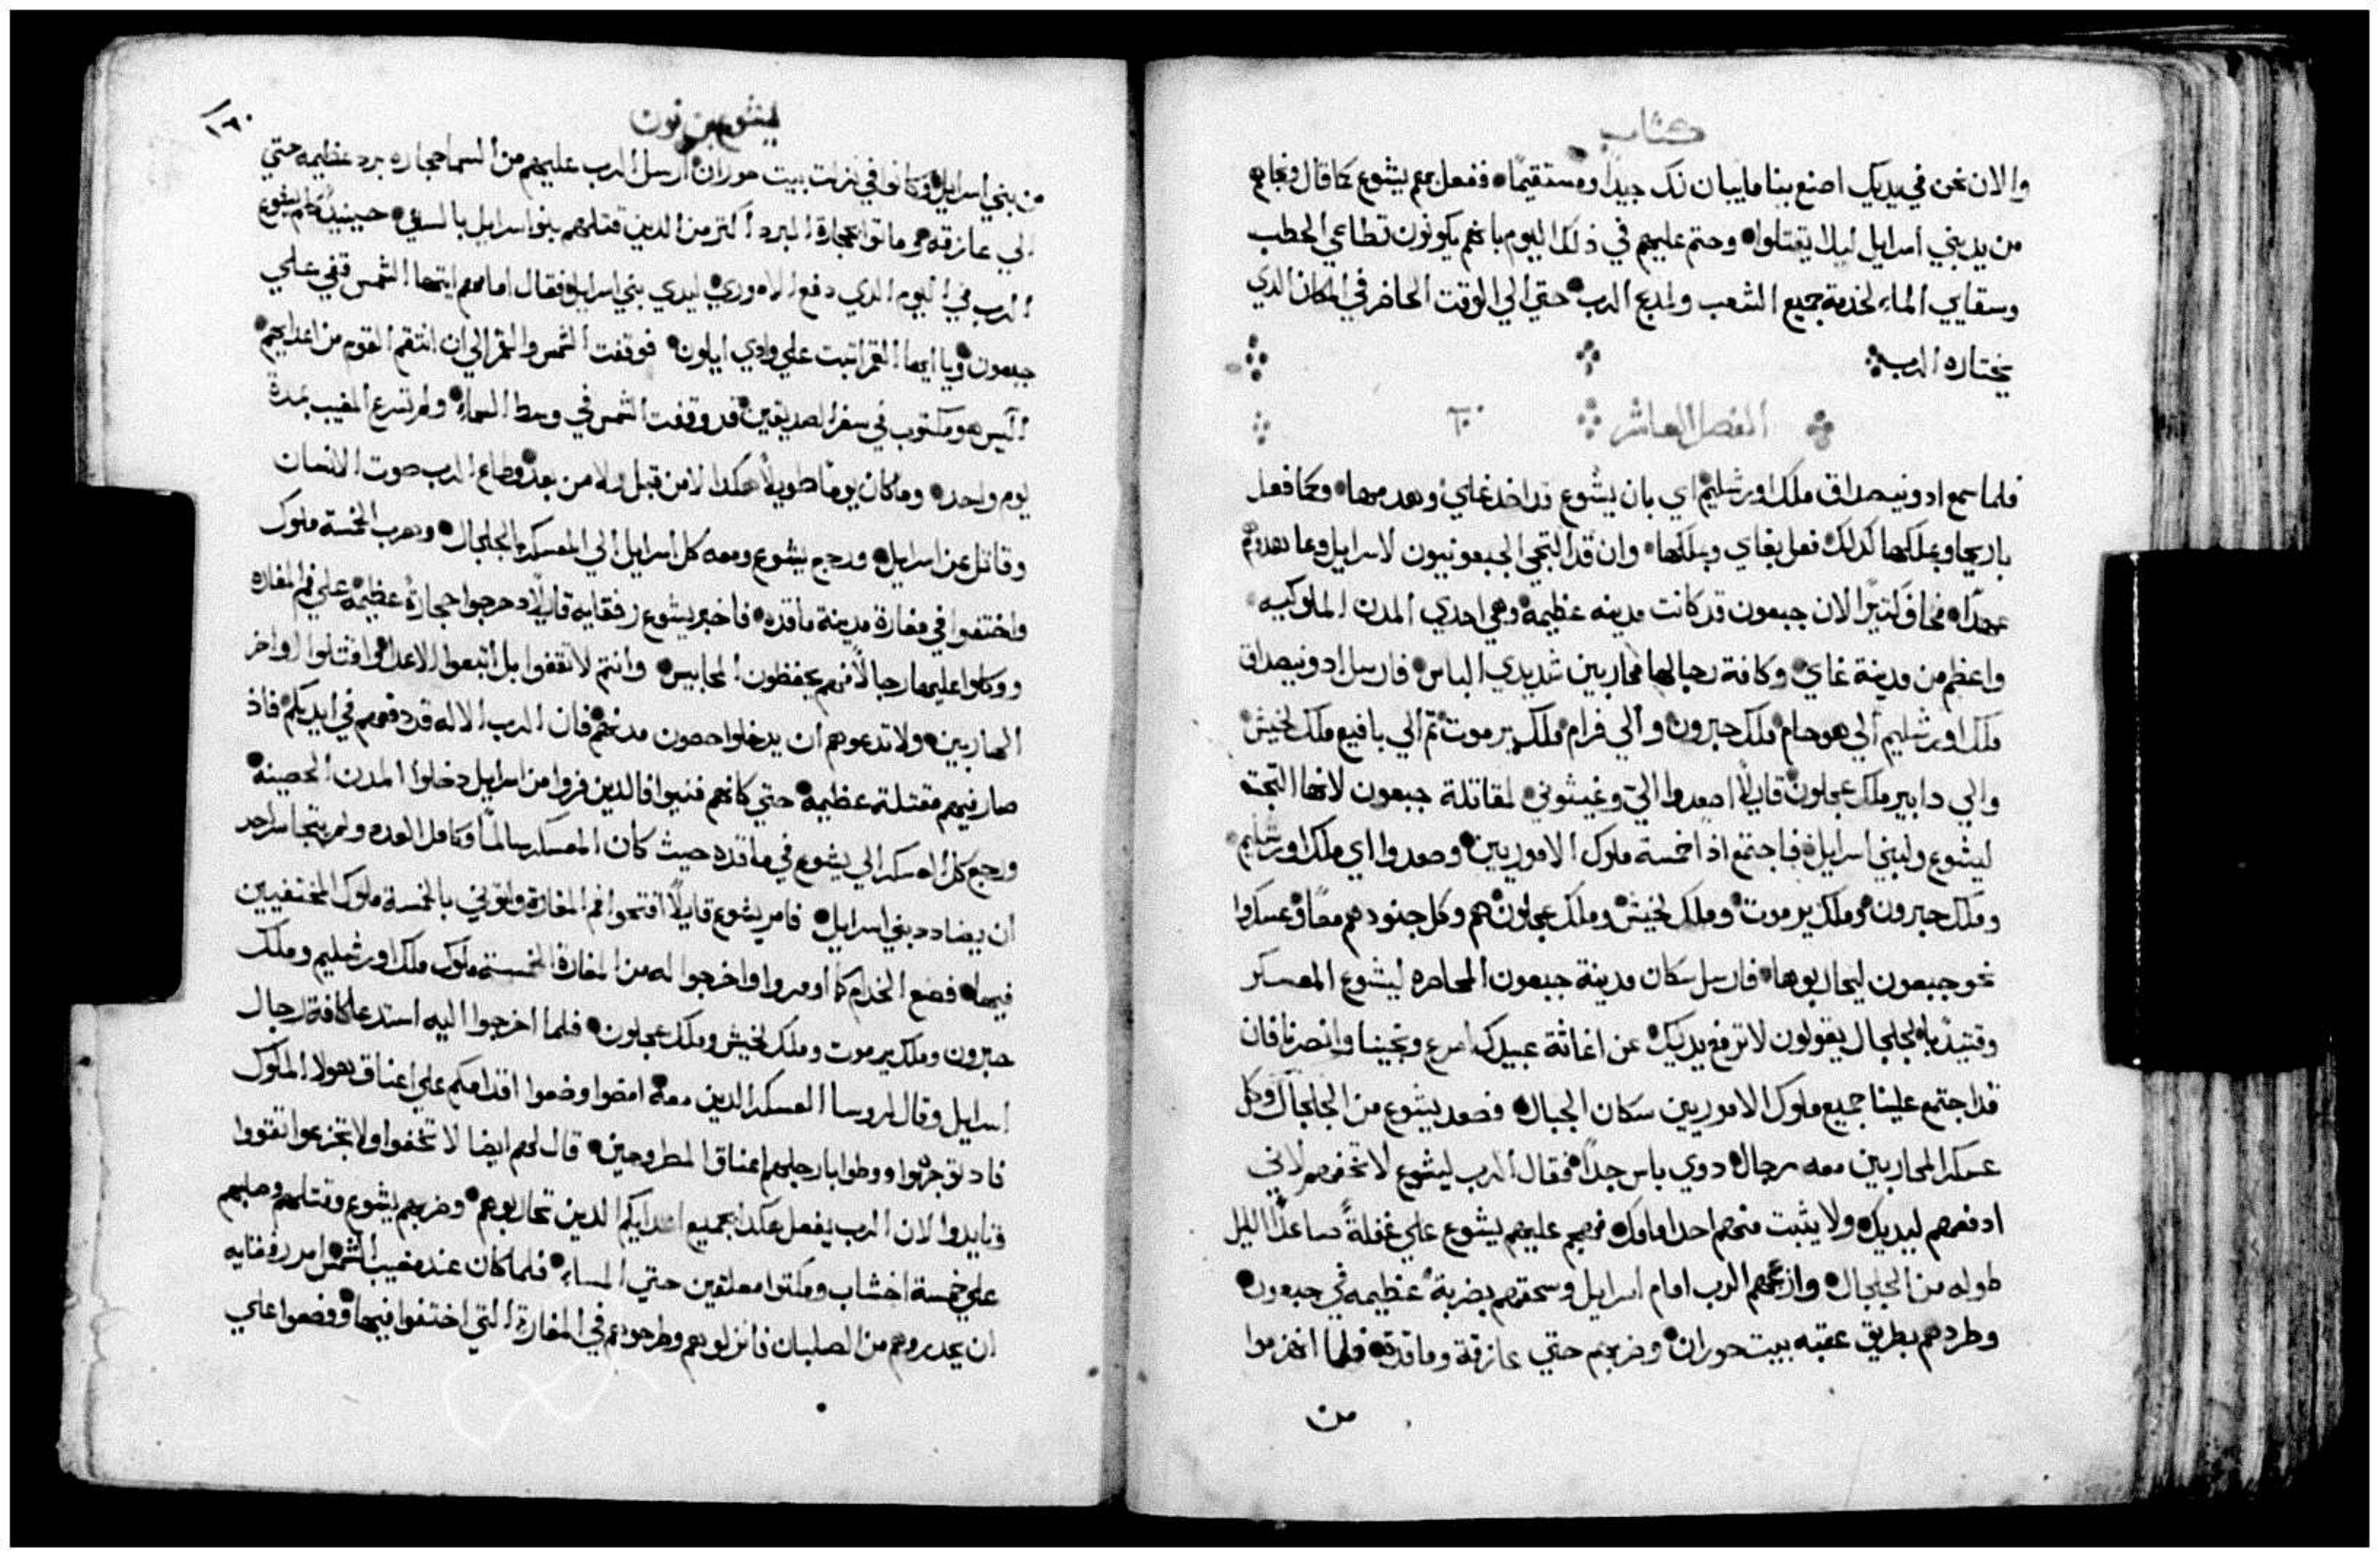 كتاب
والان نحن في يديك اصنع بنا ما يبان لك جيدًا ومستقيمًا ففعل بهم يشوع كما قال ونجاهم
من يد بني اسرايل ليلا يقتلوا وحتم عليهم في ذلك اليوم بانهم يكونون قطاعي الحطب
وسقايي الماء لخدمة جميع الشعب ولمذبح الرب حتي الي الوقت الحاضر في المكان الدي
يختاره الرب
الفصل العاشر ١٠
فلما سمع ادونيصداق ملك اورشليم اي بان يشوع قد اخد غاي وهدمها وكما فعل
باريحا وبملكها كدلك فعل بغاي وبملكها وان قد التجي الجبعونيون لاسرايل وعاهدوهم
عهدًا فخاف كتيرًا لان جبعون قد كانت مدينه عظيمة وهي احدي المدن الملوكيه
واعظم من مدينة غاي وكافة رجالها محاربين شديدي الباس فارسل ادونيصداق
ملك اورشليم الي هوحام ملك حبرون والي فرام ملك يرموت ثم الي يافيع ملك لخيش
والي دابير ملك عجلون قايلًا اصعدوا اليّ وغيثوني لمقاتلة جبعون لانها التجت
ليشوع ولبني اسرايل فاجتمع اذًا خمسة ملوك الاموريين وصعدوا اي ملك اورشليم
وملك حبرون وملك يرموت وملك لخيش وملك عجلون هم وكل جنودهم معًا وعسكروا
نحو جبعون ليحاربوها فارسل سكان مدينة جبعون المحاصره ليشوع المعسكر
وقتيدٍ بالجلجال يقولون لا ترفع يديك عن اغاثة عبيدك اسرع ونجينا وانصرنا فان
قد اجتمع علينا جميع ملوك الاموريين سكان الجبال فصعد يشوع من الجلجال وكل
عسكر المحاربين معه رجال دوي باس جدًا فقال الرب ليشوع لا تخفهم لاني
ادفعهم ليديك ولا يثبت منهم احد امامك فهجم عليهم يشوع علي غفلةً صاعدًا الليل
طوله من الجلجال وازعجهم الرب امام اسرايل وسحقهم بضربةً عظيمه في جبعون
وطردهم بطريق عقبه بيت حوران وضربهم حتي عازقة وماقدة فلما انهزموا
من
ليشوع بن نون
١٨٠
من بني اسرايل وكانوا في نزلت بيت حوران ارسل الرب عليهم من السما حجاره برد عظيمه حتي
الي عازقه وماتوا بحجارة البرد اكتر من الدين قتلهم بنو اسرايل بالسيف حينيدٍ كلم يشوع
الرب في اليوم الدي دفع الاموري ليدي بني اسرايل فقال امامهم ايتها الشمس قفي علي
جبعون ويا ايها القمر اتبت علي وادي ايلون فوقفت الشمس والقمر الي ان انتقم القوم من اعدايهم
اليس هو مكتوب في سفر الصديقين قد وقفت الشمس في وسط السماء ولم تسرع المغيب بمدة
يوم واحد وما كان يومًا طويلًا هكدا لا من قبل ولا من بعد وطاع الرب صوت الانسان
وقاتل عن اسرايل ورجع يشوع ومعه كل اسرايل الي المعسكر بالجلجال وهرب الخمسة ملوك
واختفوا في مغارة مدينة ماقده فاخبر يشوع رفقايه قايلًا دحرجوا حجارةً عظيمة علي فم المغاره
ووكلوا عليها رجالًا فهم يحفظون المحابيس وانتم لا تقفوا بل اتبعوا الاعدا واقتلوا اواخر
الهاربين ولا تدعوهم ان يدخلوا حصون مدنهم فان الرب الاله قد دفعهم في ايديكم فاذ
صار فيهم مقتلة عظيمة حتي كانهم فنيوا فالدين فروا من اسرايل دخلوا المدن الحصينة
ورجع كل العسكر الي يشوع في ماقده حيث كان المعسكر سالمًا وكامل العدد ولم يتجاسر احد
ان يضادد بني اسرايل فامر يشوع قايلًا افتحوا فم المغارة واتوني بالخمسة ملوك المختفيين
فيها فصنع الخدام كما اومروا واخرجوا له من المغارة الخمسة ملوك ملك اورشليم وملك
حبرون وملك يرموت وملك لخيش وملك عجلون فلما اخرجوا اليه استدعا كافة رجال
اسرايل وقال لروسا العسكر الدين معه امضوا وضعوا اقدامكم علي اعناق هولا الملوك
فاد توجهوا ووطوا بارجلهم اعناق المطروحين قال لهم ايضا لا تخافوا ولا تجزعوا تقووا
وتايدوا لان الرب يفعل هكدا بجميع اعدايكم الدين تحاربوهم وضربهم يشوع وقتلهم وصلبهم
علي خمسة اخشاب ومكتوا معلقين حتي المساء فلما كان عند مغيب الشمس امر رفقايه
ان يحدروهم من الصلبان فانزلوهم وطرحوهم في المغارة التي اختفوا فيها ووضعوا علي